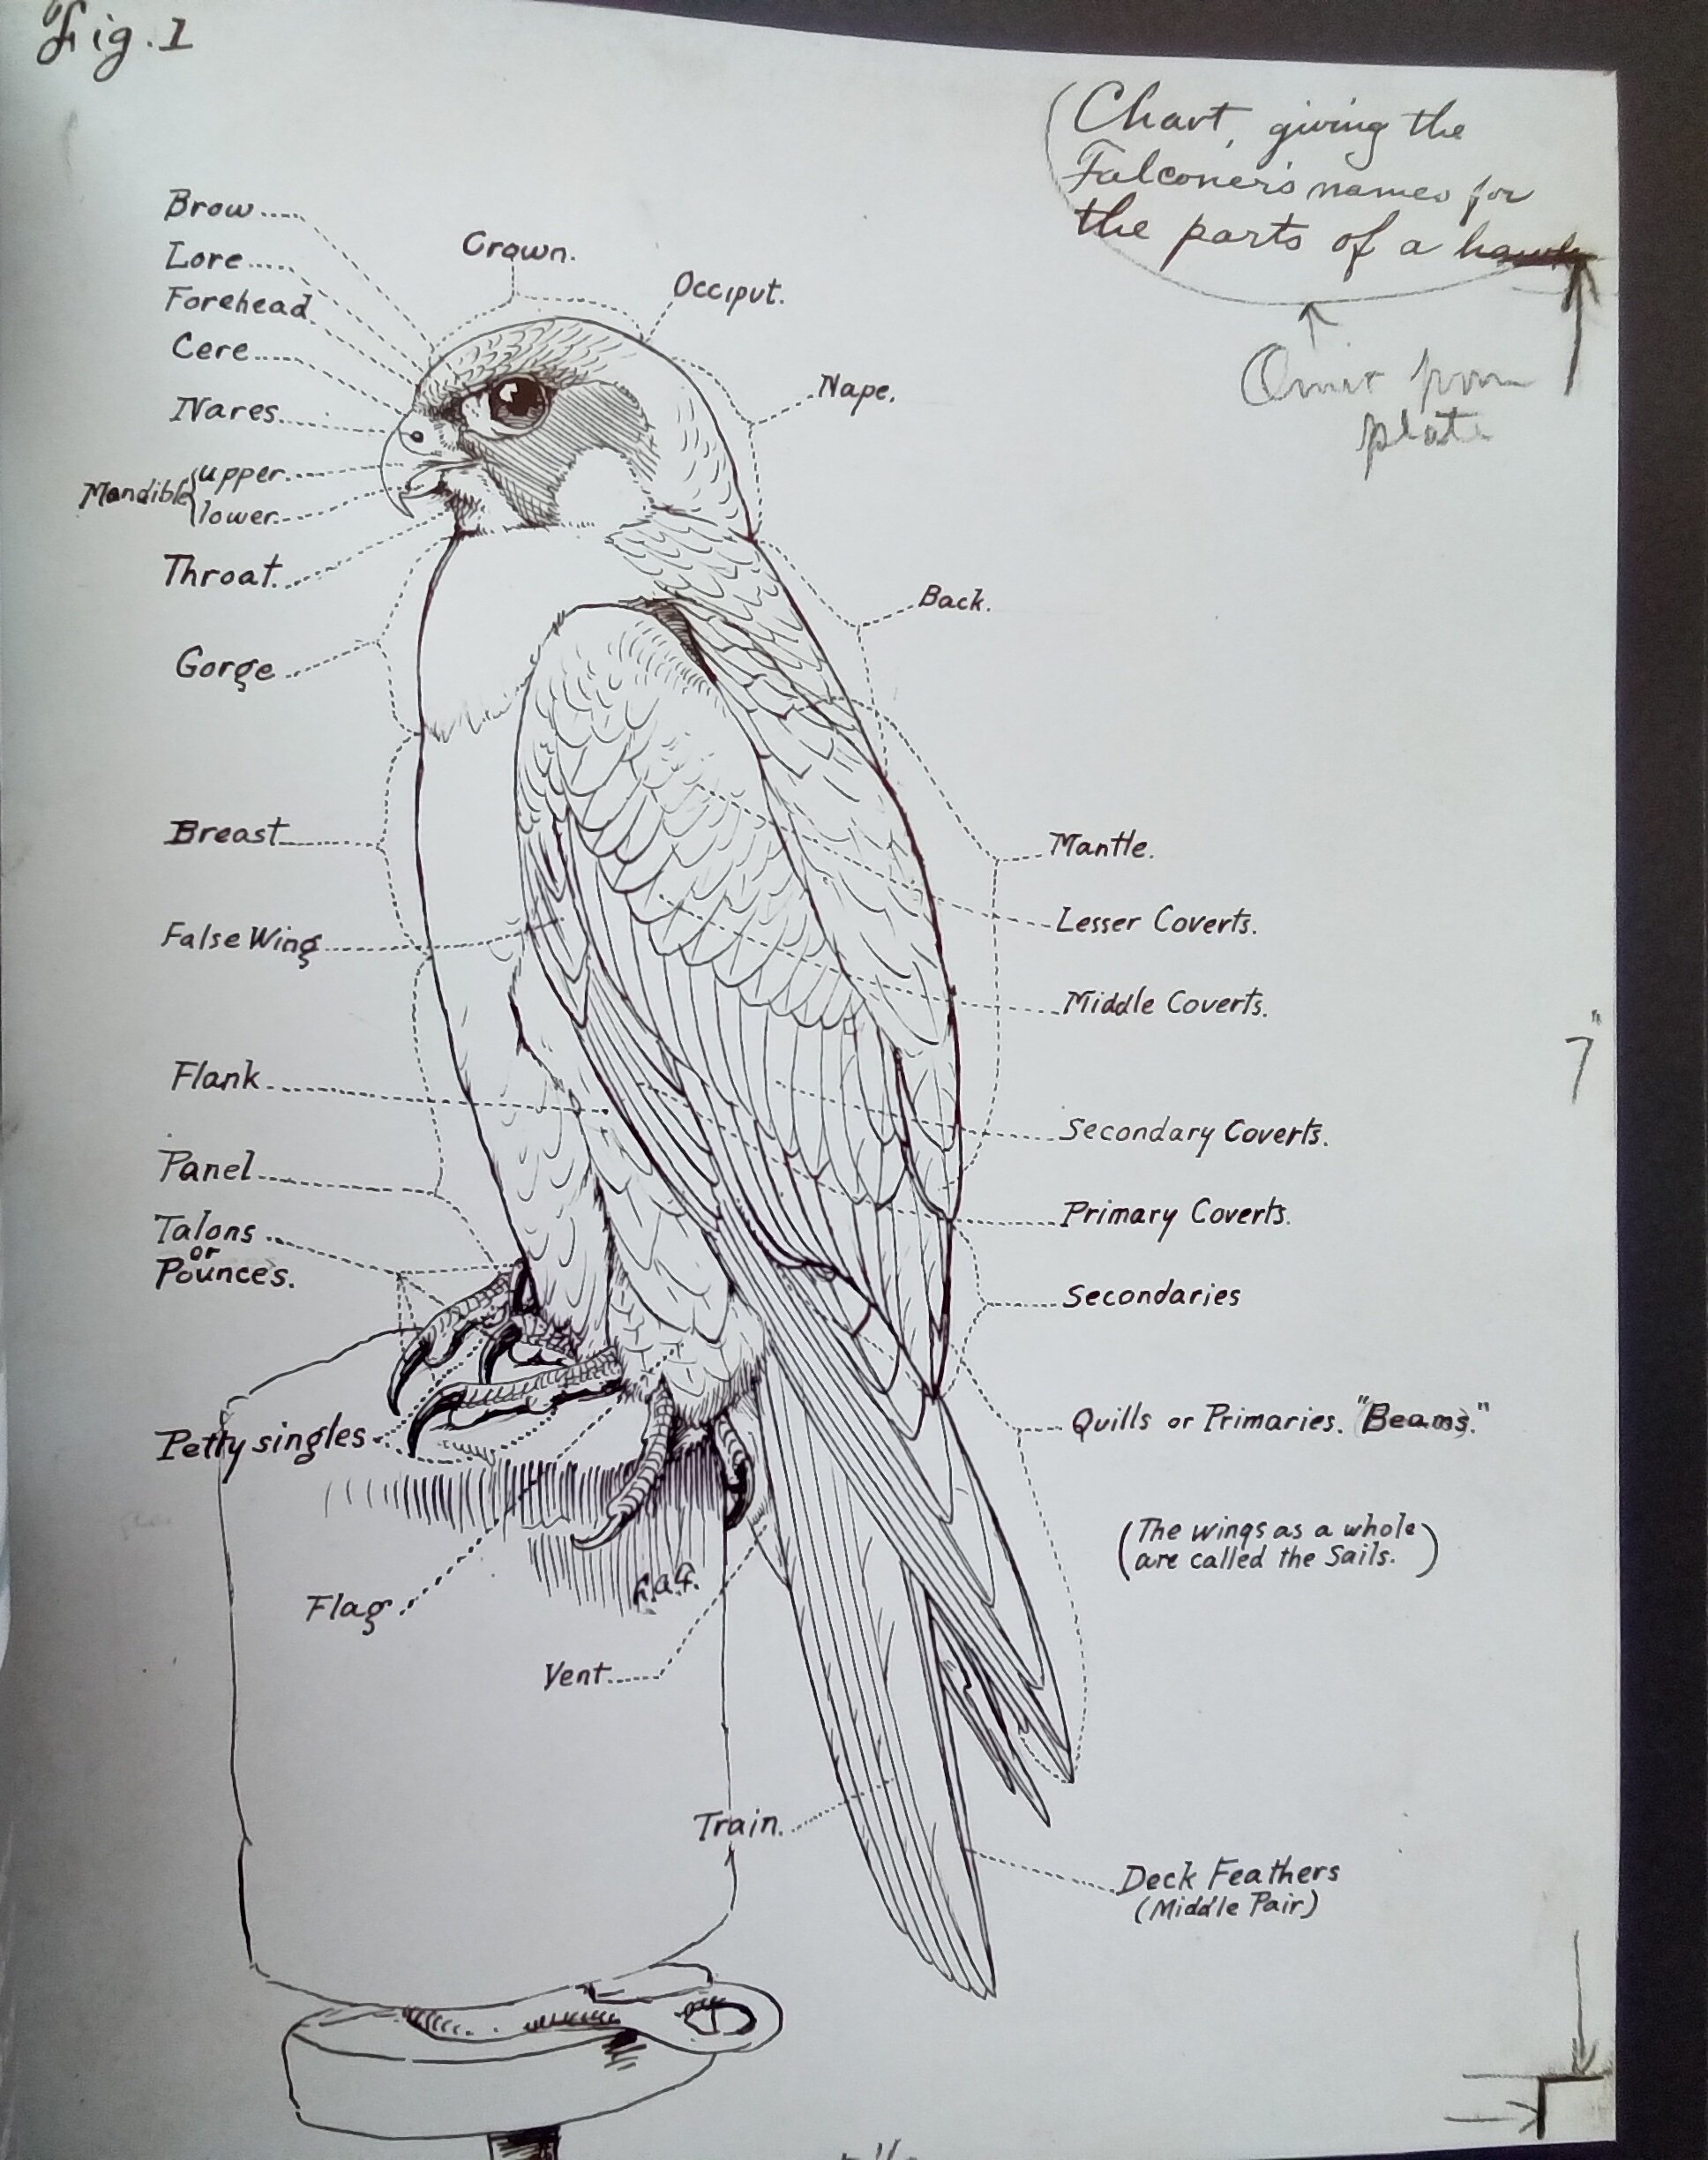 Fig. 1
Chart, giving the
Falconer's names for
the parts of a hawk
Omit from
plate
Brow
Lore
Forehead
Cere
Nares
Mandible upper
lower
Throat.
Gorge
Breast
False Wing
Flank
Panel
Talons
or
Pounces.
Petty singles
Flag
Vent
Train.
Crown.
Occiput.
Nape.
Back.
Mantle.
Lesser Coverts.
Middle Coverts.
7"
Secondary Coverts.
Primary Coverts.
Secondaries
Quills or Primaries. "Beams."
(The wings as a whole
are called the Sails.)
Deck Feathers
(Middle Pair)